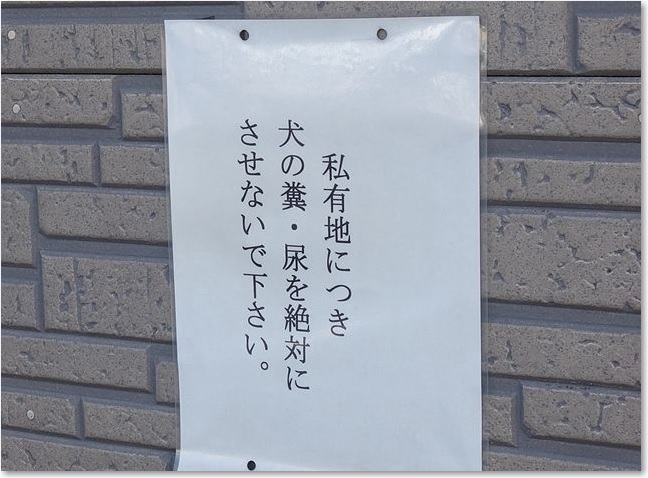 私有地につき
犬の糞・尿を絶対に
させないで下さい。